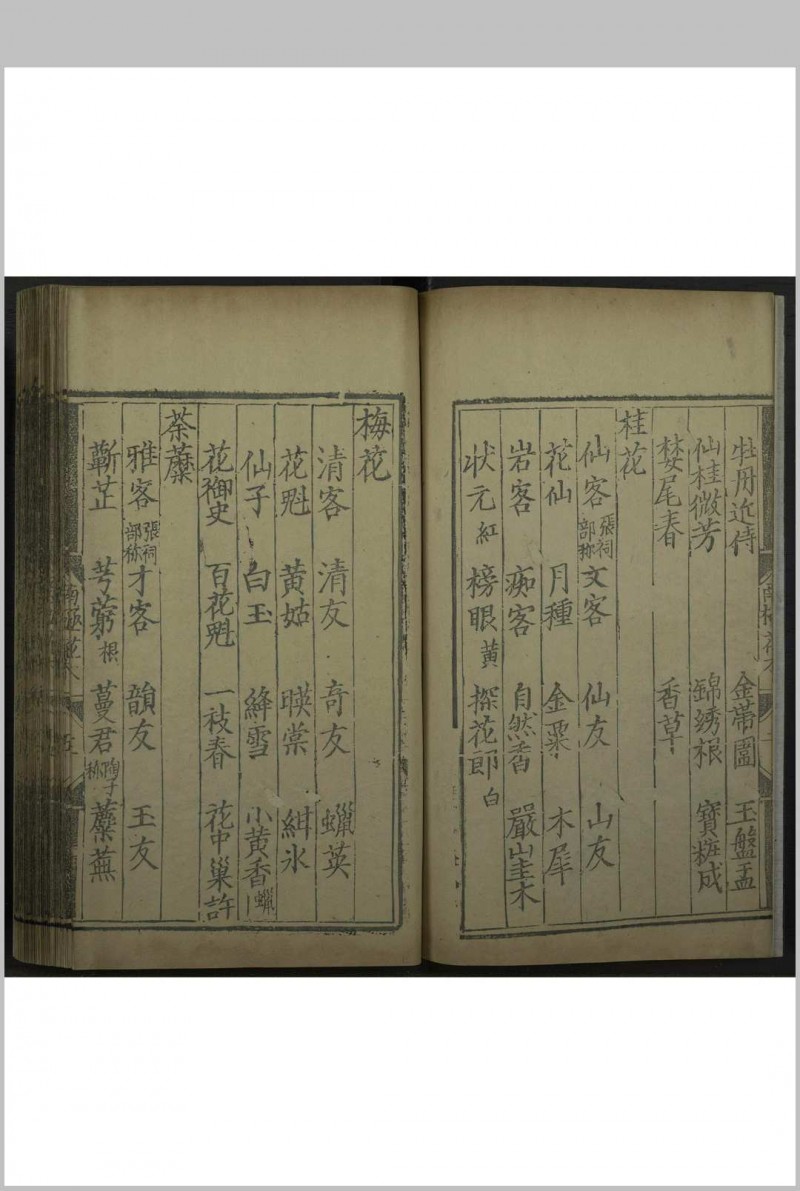 牡丹近侍 金蒂圍 玉盤盂
仙桂微芳 錦綉根 寶粧成
婪尾春 香草
桂花
仙客 張祠部称 文客 仙友 山友
花仙 月種 金粟 木犀
岩客 痴客 自然香 嚴山圭木
状元 紅 榜眼 黄 探花郎 白
梅花
清客 清友 奇友 蠟英
花魁 黄姑 暎棠 紺氷
仙子 白玉 絳雪 小黄香 蠟
花御史 百花魁 一枝春 花中巢許
荼蘼
雅客 張祠部称 才客 韻友 玉友
蘄芷 芎藭 根 蔓君 陶子称 蘪蕪